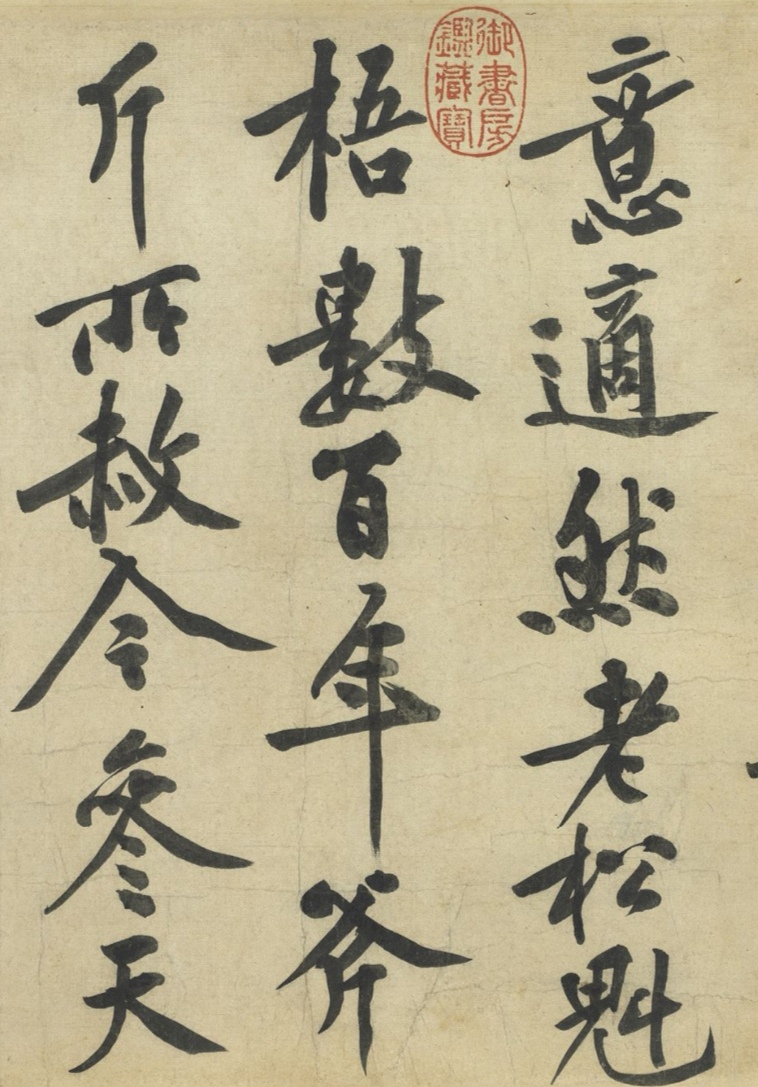 意適然老松魁
梧數百年斧
斤所赦今參天
御書房
鑑藏寶